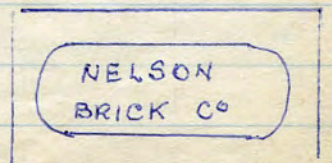 NELSON
BRICK Cº